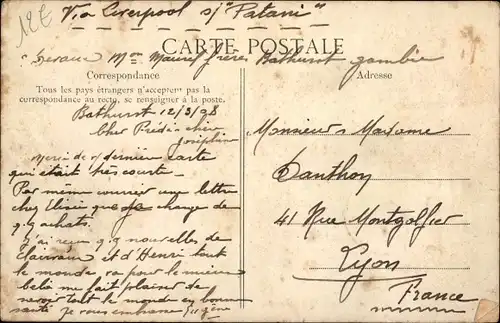 12€
Via Liverpool s/s "Patani"
CARTE POSTALE
Mon Maurel frères Bathurst Gambie
Correspondance
Adresse
Tous les pays étrangers n'acceptent pas la
correspondance au recto, se renseigner à la poste.
Bathurst 12/3/08
Cher
Joséphine
Merci de v/ dernière carte
qui était très courte -
Par même courrier une lettre
chez Elisée que je charge de
q.q achats.
J'ai reçu q.q nouvelles de
Clairvaux et d'Henri tout
le monde va pour le mieux
cela me fait plaisir de
savoir tout le monde en bonne
santé je vous embrasse Eugène
Monsieur Madame
Danthon
41 Rue Montgolfier
Lyon
France